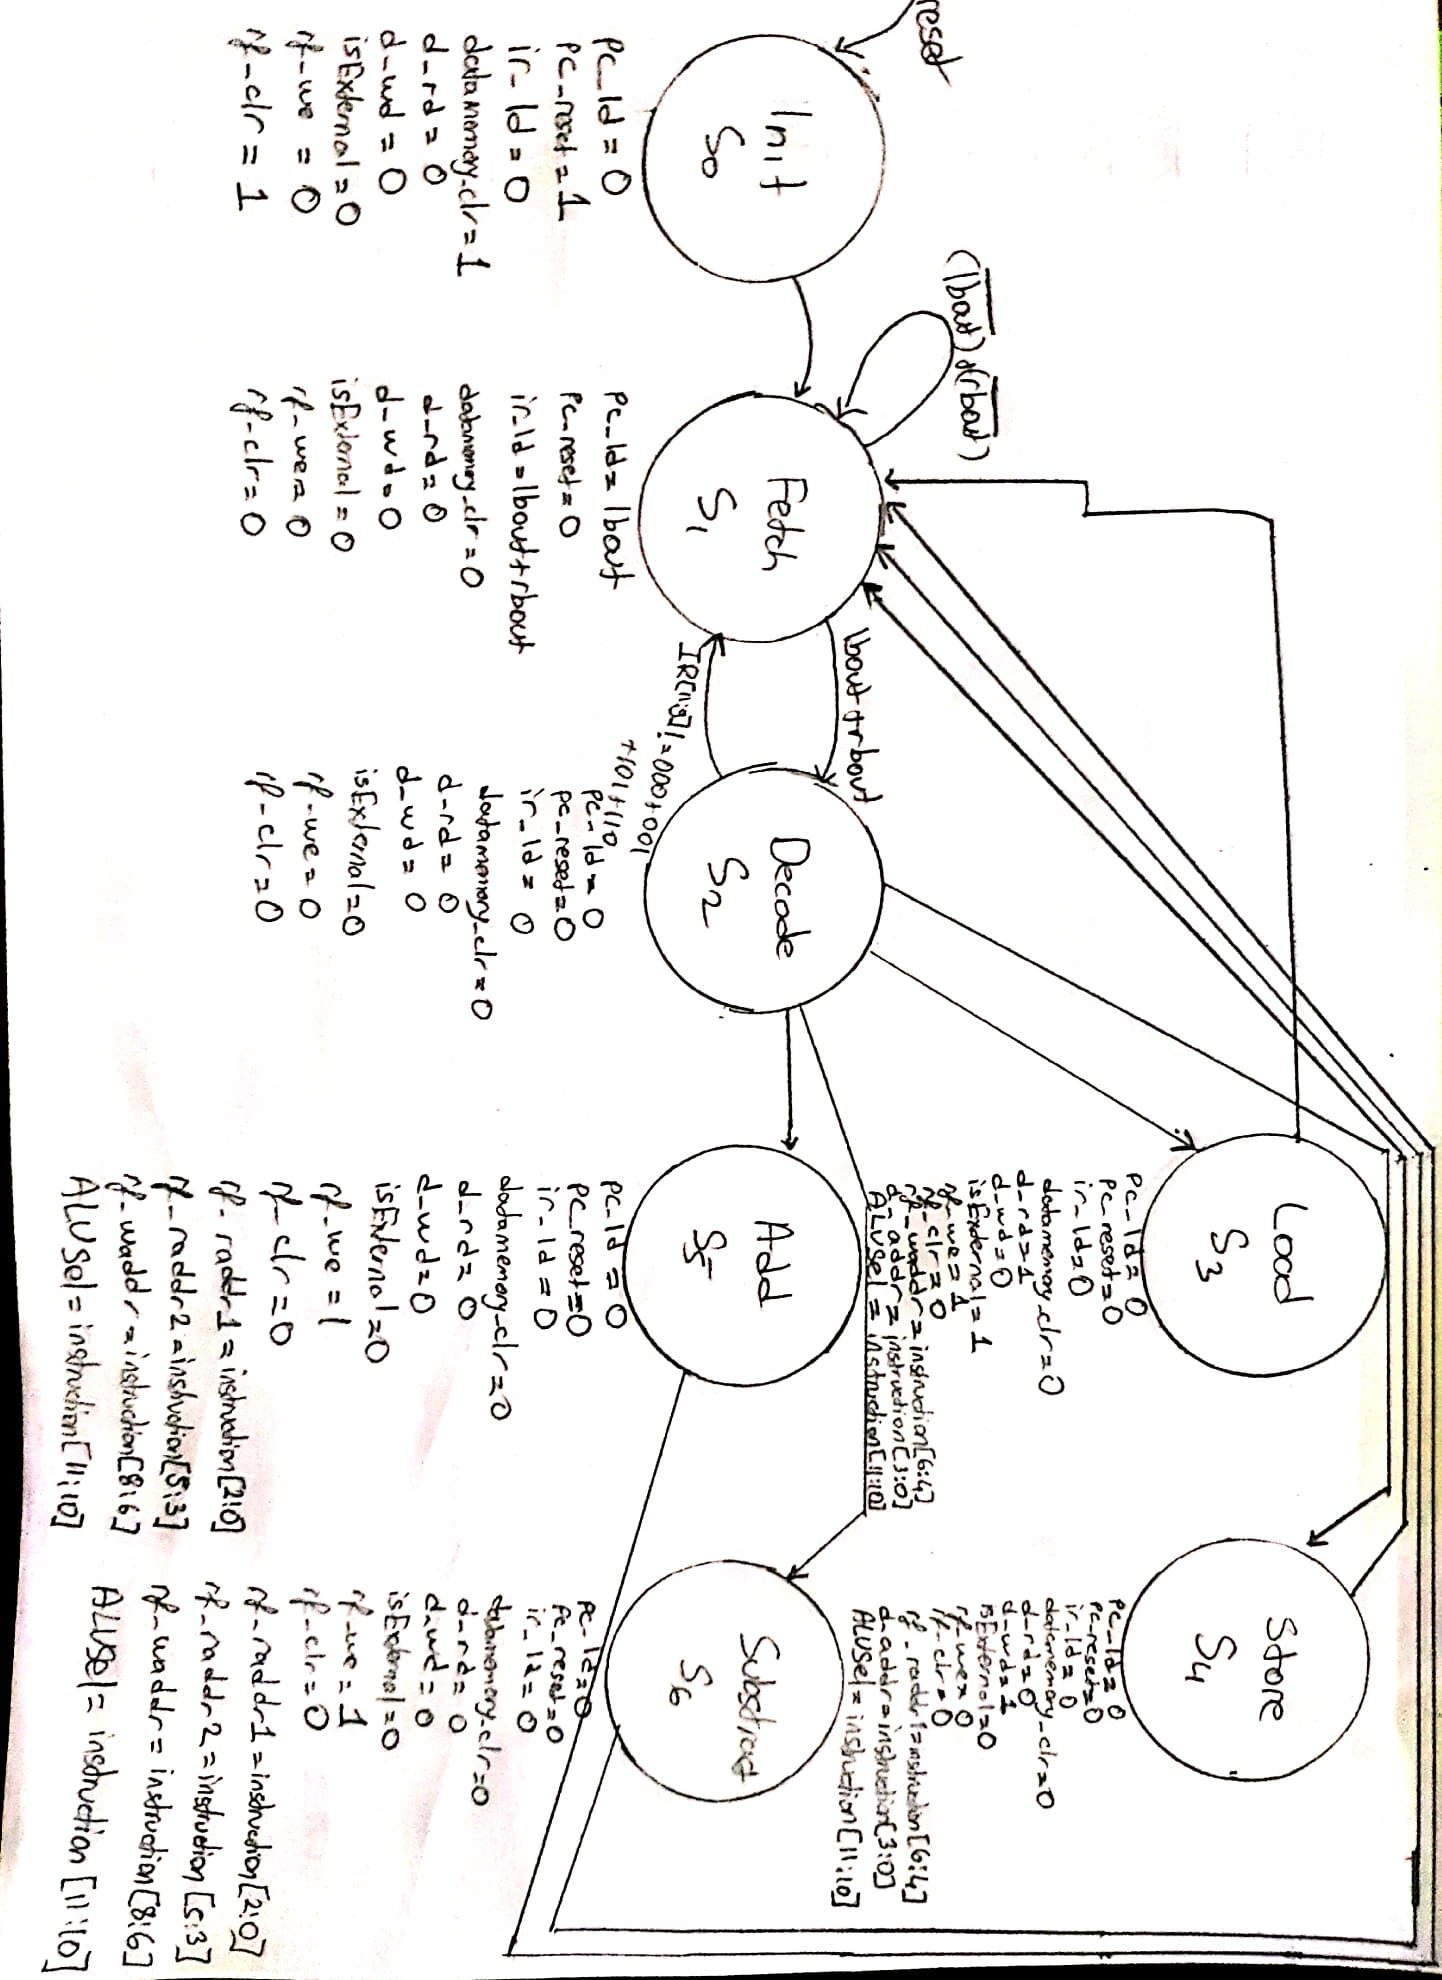 reset
Init
S0
pc_ld = 0
pc_reset = 1
ir_ld = 0
datamemory_clr = 1
d_rd = 0
d_wd = 0
isExternal = 0
rf_we = 0
rf_clr = 1
(lbout)&(rbout)
Fetch
S1
pc_ld = lbout
pc_reset = 0
ir_ld = lbout+rbout
datamemory_clr = 0
d_rd = 0
d_wd = 0
isExternal = 0
rf_we = 0
rf_clr = 0
lbout+rbout
IR[11:9]!=000+001
+101+110
Decode
S2
pc_ld = 0
pc_reset = 0
ir_ld = 0
datamemory_clr = 0
d_rd = 0
d_wd = 0
isExternal = 0
rf_we = 0
rf_clr = 0
Load
S3
pc_ld = 0
pc_reset = 0
ir_ld = 0
datamemory_clr = 0
d_rd = 1
d_wd = 0
isExternal = 1
rf_we = 1
rf_clr = 0
rf_waddr = instruction[6:4]
d_addr = instruction[3:0]
ALUSel = instruction[11:10]
Store
S4
pc_ld = 0
pc_reset = 0
ir_ld = 0
datamemory_clr = 0
d_rd = 0
d_wd = 1
isExternal = 0
rf_we = 0
rf_clr = 0
rf_raddr1 = instruction[6:4]
d_addr = instruction[3:0]
ALUSel = instruction[11:10]
Add
S5
pc_ld = 0
pc_reset = 0
ir_ld = 0
datamemory_clr = 0
d_rd = 0
d_wd = 0
isExternal = 0
rf_we = 1
rf_clr = 0
rf_raddr1 = instruction[2:0]
rf_raddr2 = instruction[5:3]
rf_waddr = instruction[8:6]
ALUSel = instruction[11:10]
Substract
S6
pc_ld = 0
pc_reset = 0
ir_ld = 0
datamemory_clr = 0
d_rd = 0
d_wd = 0
isExternal = 0
rf_we = 1
rf_clr = 0
rf_raddr1 = instruction[2:0]
rf_raddr2 = instruction[5:3]
rf_waddr = instruction[8:6]
ALUSel = instruction[11:10]